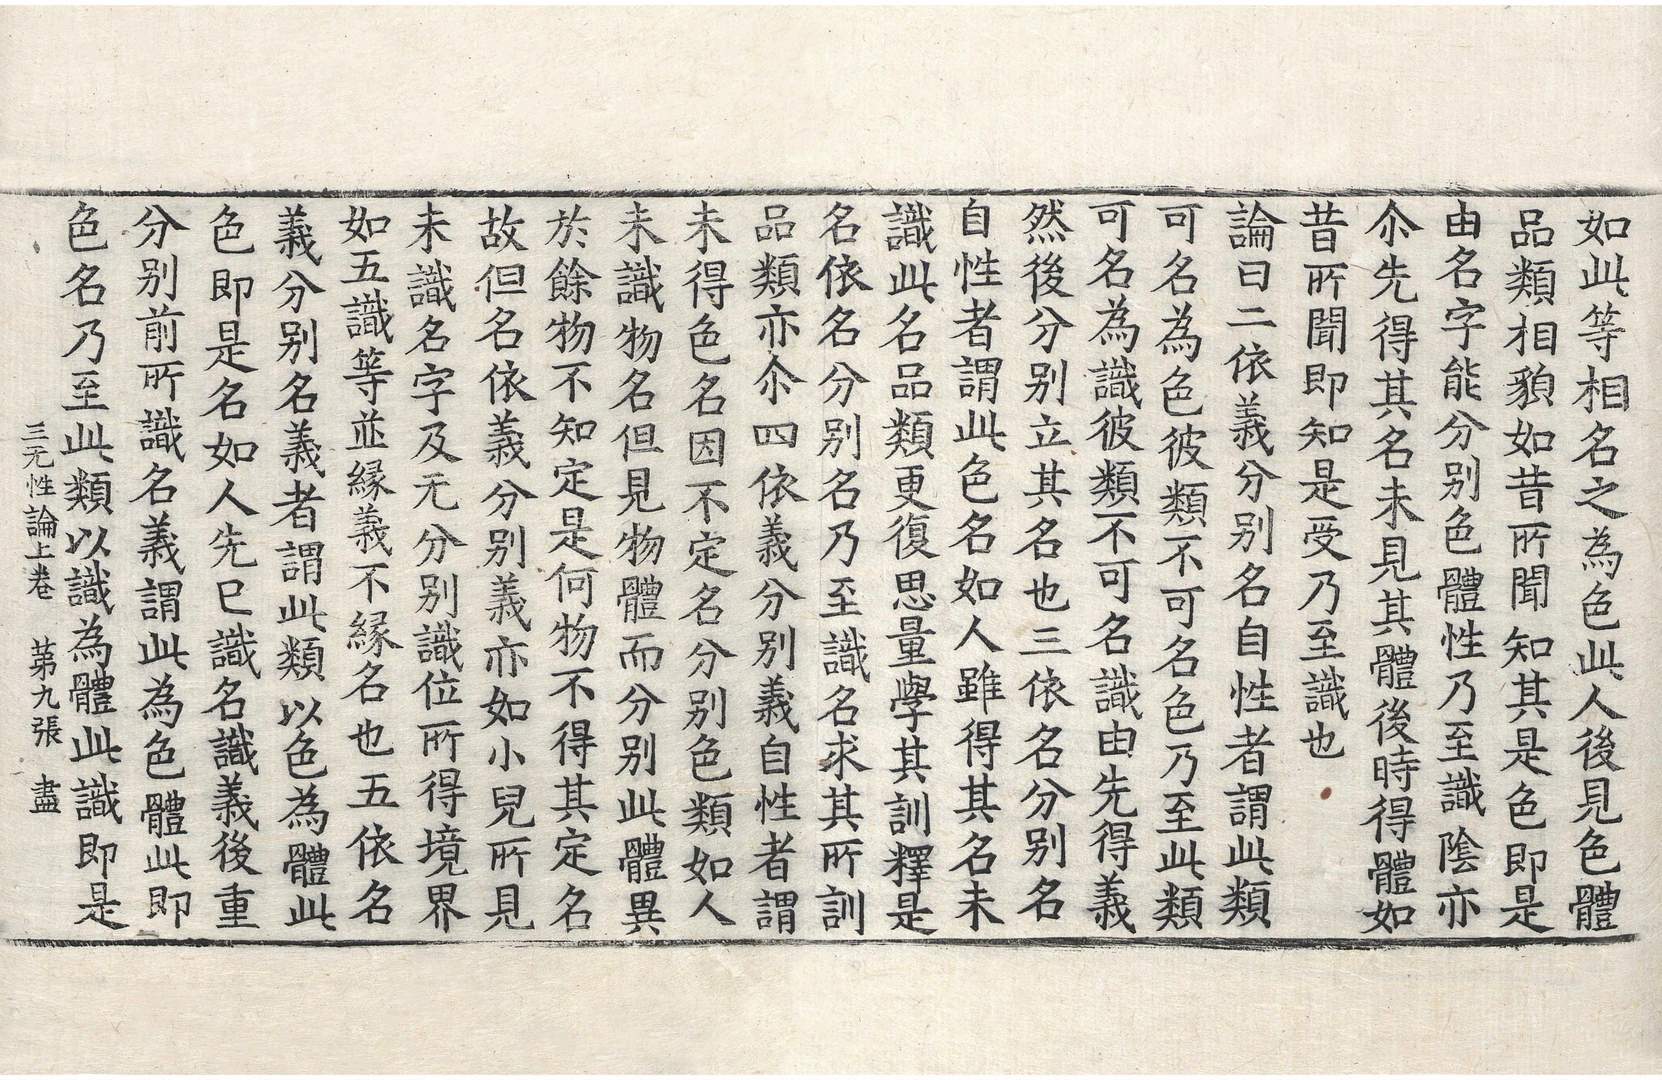 如此等相名之為色此人後見色體
品類相貌如昔所聞知其是色即是
由名字能分别色體性乃至識陰亦
尒先得其名未見其體後時得體如
昔所聞即知是受乃至識也
論曰二依義分别名自性者謂此類
可名為色彼類不可名色乃至此類
可名為識彼類不可名識由先得義
然後分别立其名也三依名分别名
自性者謂此色名如人雖得其名未
識此名品類更復思量學其訓釋是
名依名分别名乃至識名求其所訓
品類亦尒四依義分别義自性者謂
未得色名因不定名分别色類如人
未識物名但見物體而分别此體異
於餘物不知定是何物不得其定名
故但名依義分别義亦如小兒所見
未識名字及无分别識位所得境界
如五識等並緣義不緣名也五依名
義分别名義者謂此類以色為體此
色即是名如人先已識名識義後重
分别前所識名義謂此為色體此即
色名乃至此類以識為體此識即是
三无性論上卷 苐九張 盡